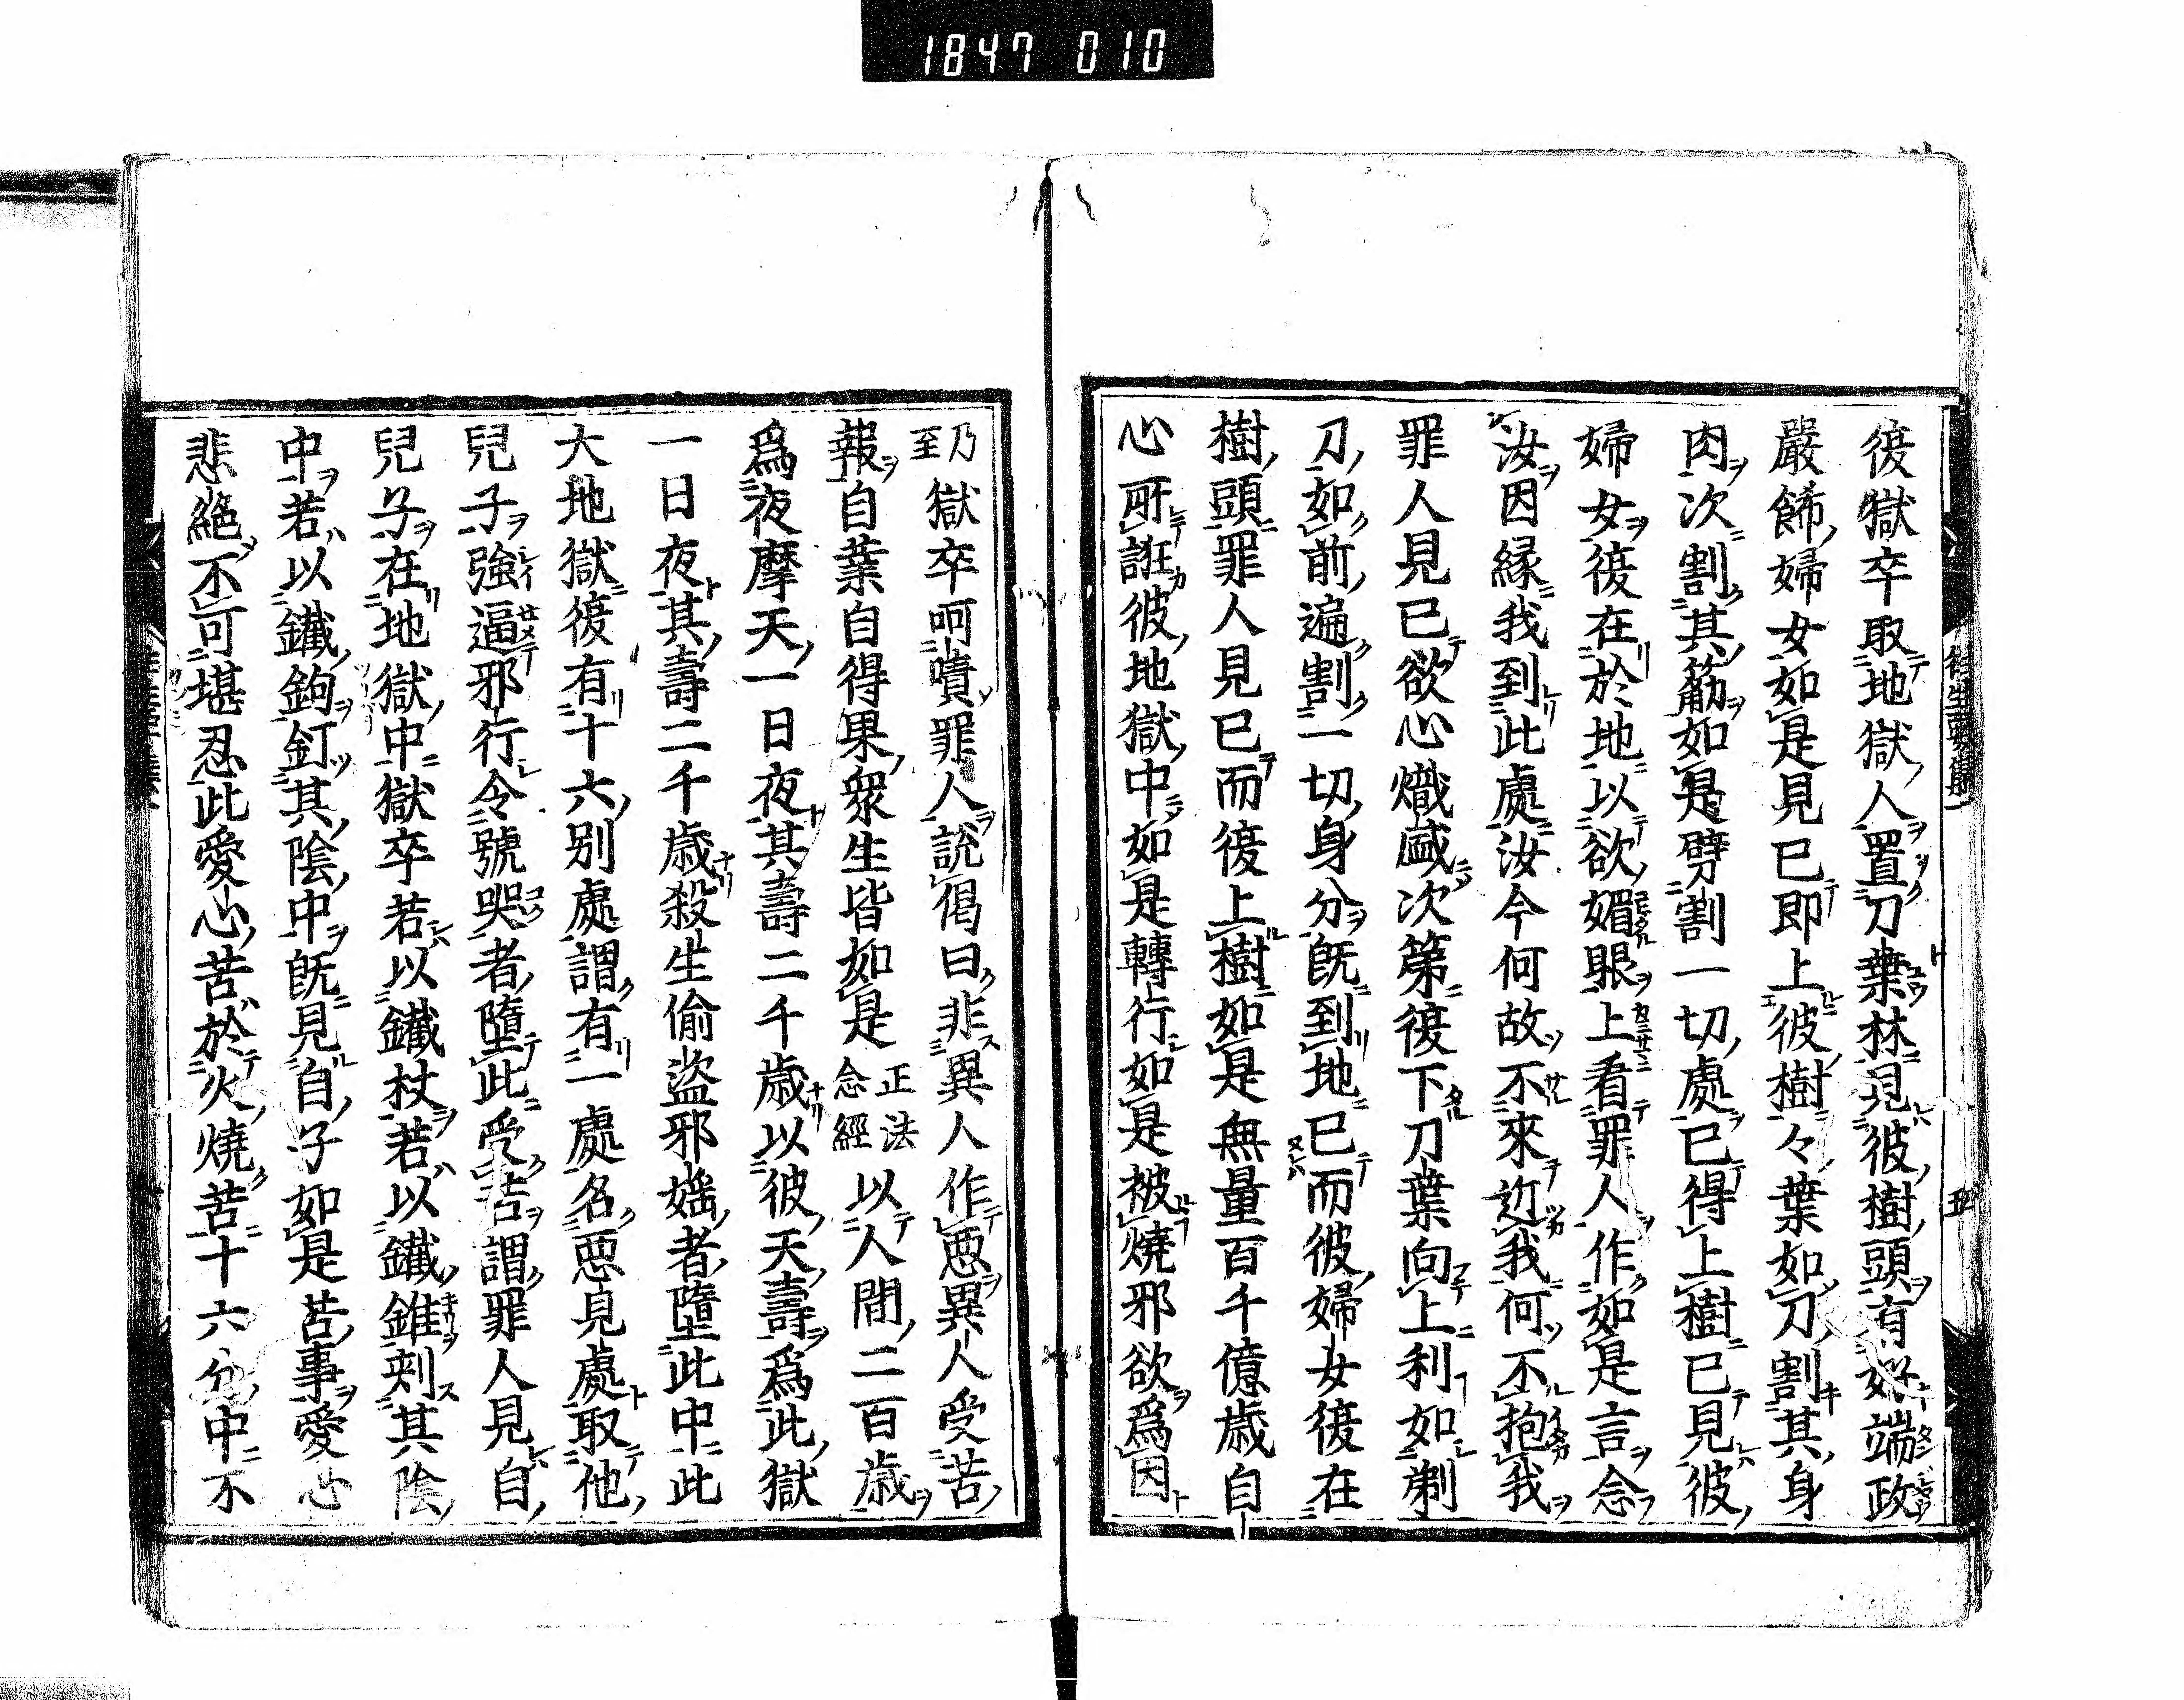 1847 010
往生要集
五
復獄卒取地獄人置刀葉林見彼樹頭有好端政
嚴餝婦女如是見已即上彼樹々葉如刀割其身
肉次割其筋如是劈割一切處已得上樹已見彼
婦女復在於地以欲媚眼上看罪人作如是言念
汝因縁我到此處汝今何故不來近我何不抱我
罪人見已欲心熾盛次第復下刀葉向上利如剃
刀如前遍割一切身分既到地已而彼婦女復在
樹頭罪人見已而復上樹如是無量百千億歳自
心所誑彼地獄中如是轉行如是被燒邪欲爲因
乃至獄卒呵嘖罪人説偈曰非異人作惡異人受苦
報自業自得果衆生皆如是正法念經以人間二百歳
爲夜摩天一日夜其壽二千歳以彼天壽爲此獄
一日夜其壽二千歳殺生偷盜邪婬者墮此中此
大地獄復有十六別處謂有一處名惡見處取他
兒子強逼邪行令號哭者墮此受苦謂罪人見自
兒子在地獄中獄卒若以鐵杖若以鐵錐刺其陰
中若以鐵鉤釘其陰中既見自子如是苦事愛心
悲絶不可堪忍此愛心苦於火燒苦十六分中不